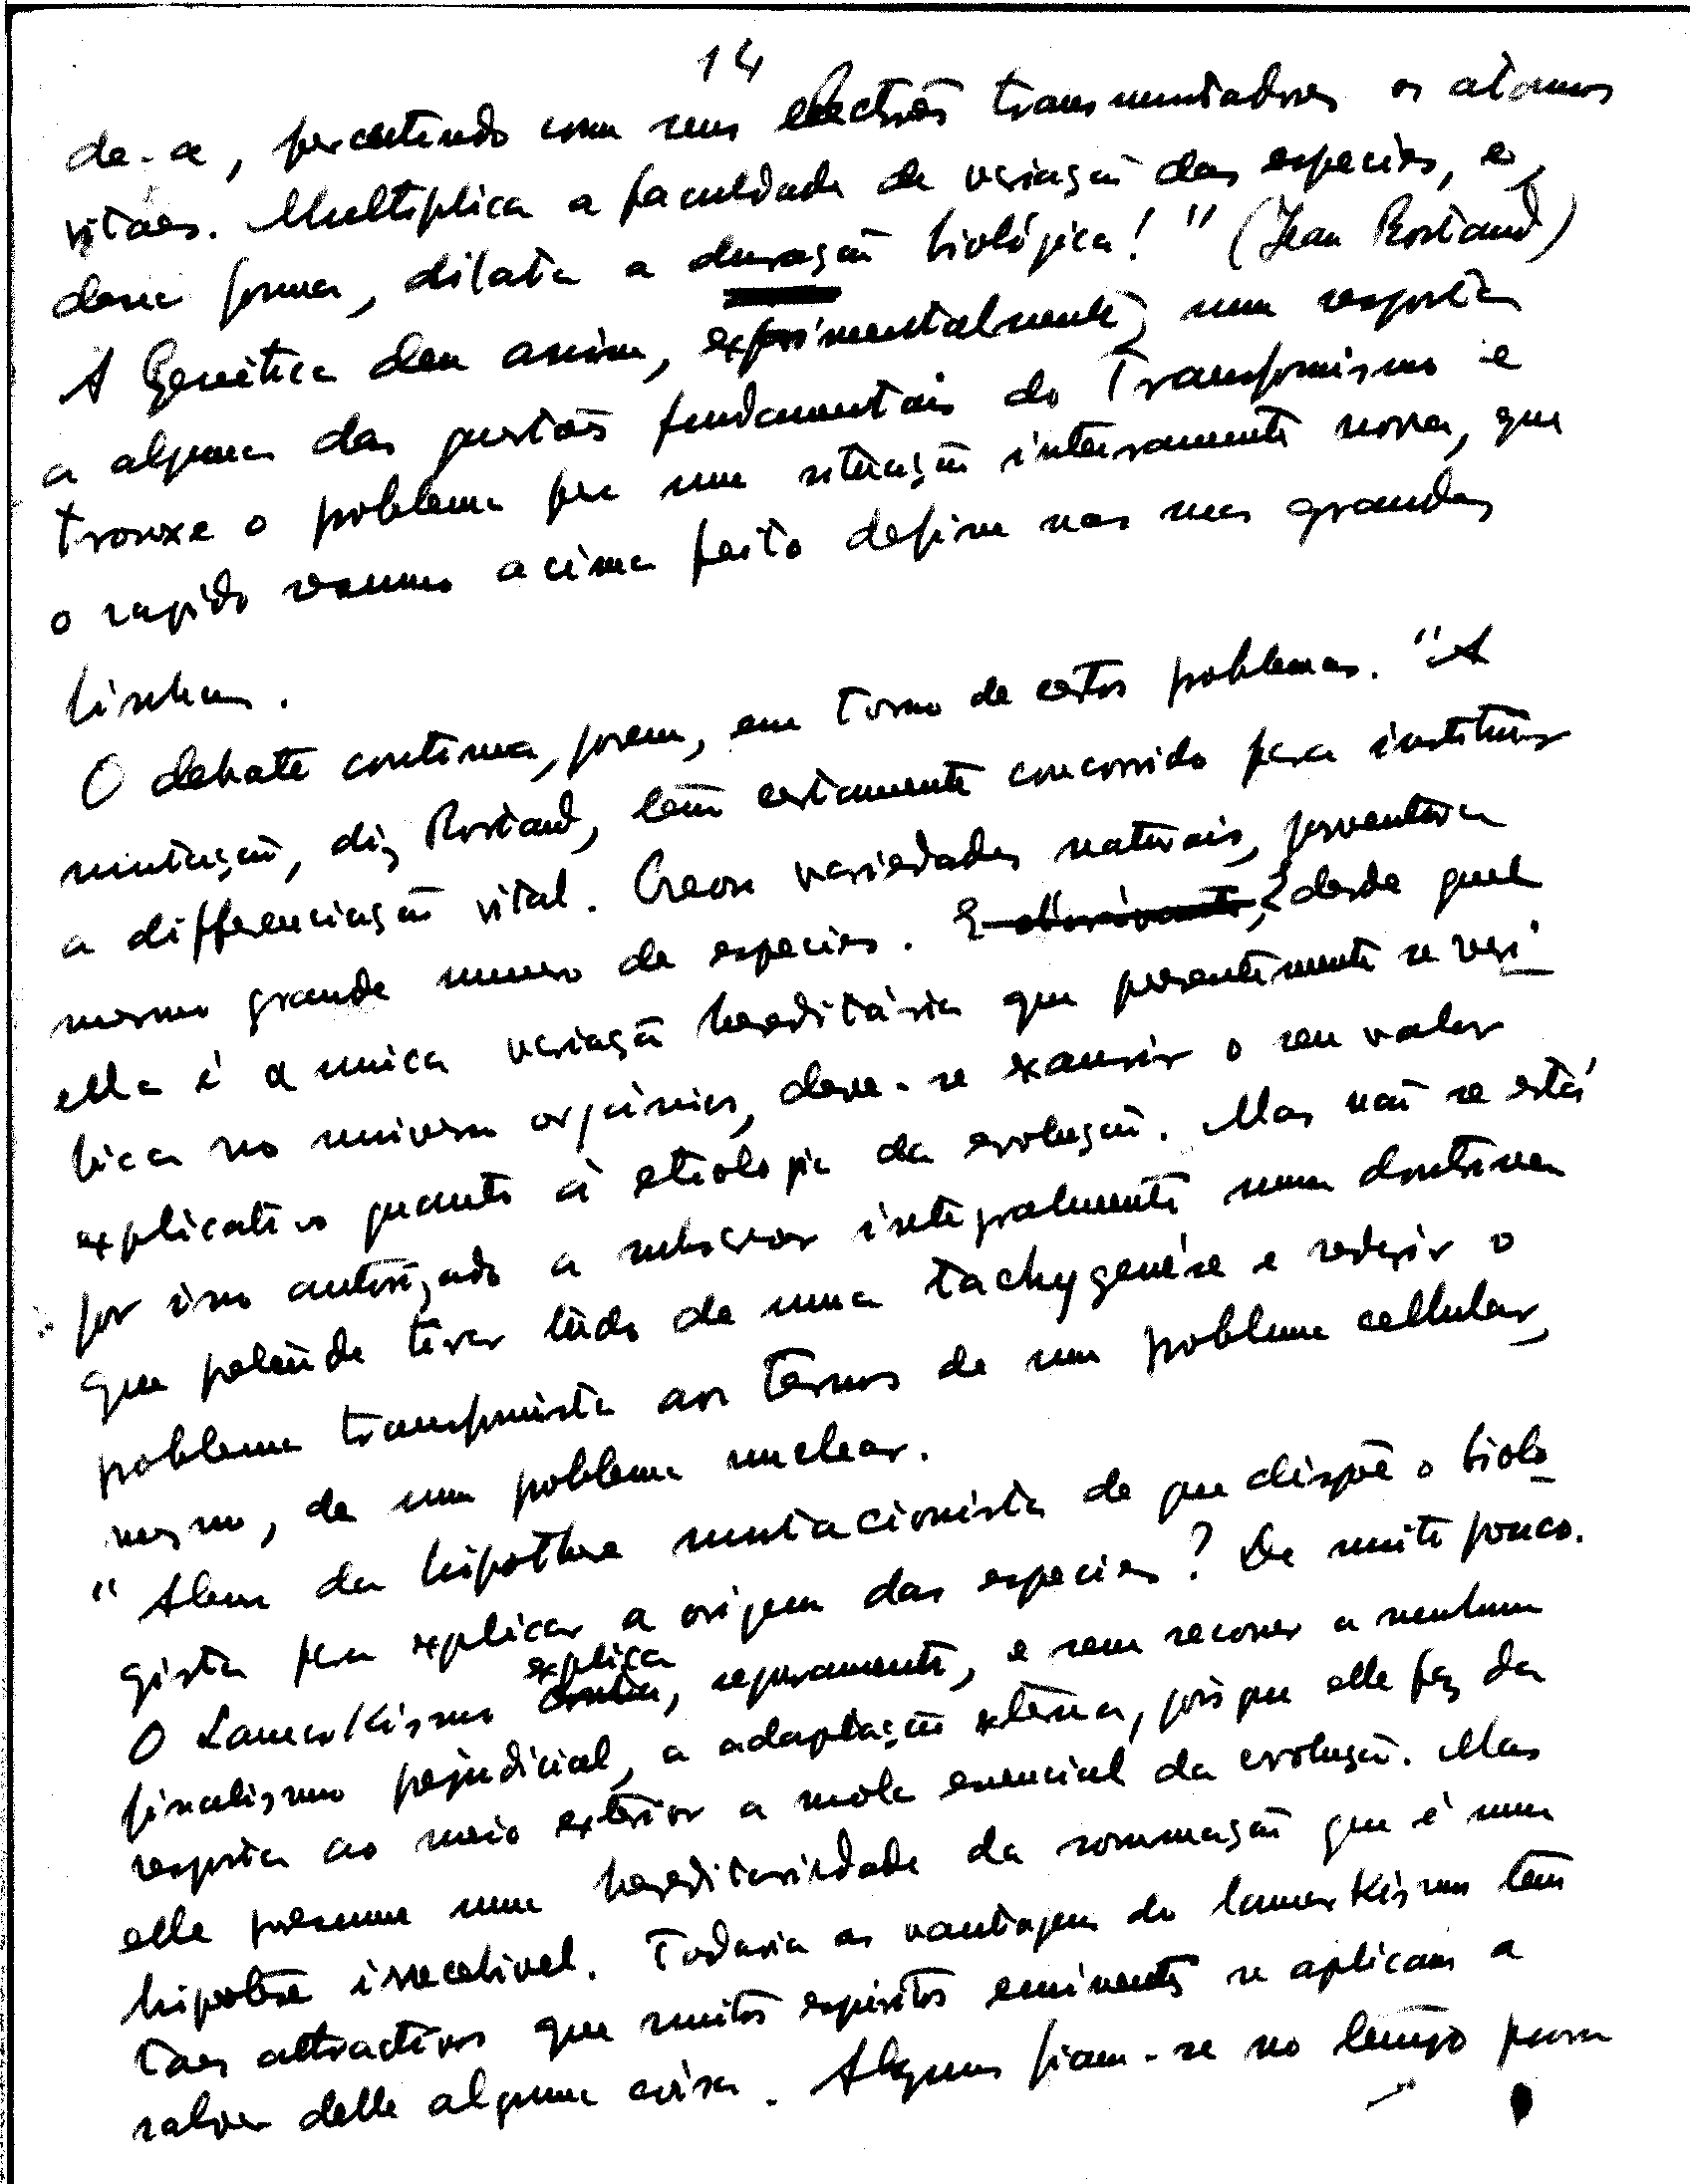 14
de-a, percutindo com seus electrões transmutadores os atomos
vitaes. Multiplica a faculdade de variação das especies, e,
dessa forma, dilata a duração biológica!" (Jean Rostand)
A Genética deu assim, experimentalmente, uma resposta
a algumas das questões fundamentais do Transformismo e
trouxe o problema para uma situação inteiramente nova, que
o rapido resumo acima feito define nas suas grandes
linhas.
O debate continua, porem, em torno de certos problemas. "A
mutação, diz Rostand, tem certamente concorrido para instituir
a differenciação vital. Creou variedades naturais, porventura
mesmo grande numero de especies. E desde que
ella é a unica variação hereditária que presentemente se veri-
fica no universo orgánico, deve-se exaurir o seu valor
explicativo quanto á etiologia da evolução. Mas não se está
por isso autorizado a subscrever integralmente uma doutrina
que pretende tirar tudo de uma tachygenése e redigir o
problema transformista aos termos de um problema cellular,
mesmo, de um problema nuclear.
"Alem da hipothese mutacionista de que dispõe o biolo-
gista para explicar a origem das especies? De muito pouco.
explica
O Lamarkismo, seguramente, e sem recorrer a nenhum
finalismo prejudicial, a adaptação externa, pois que elle faz da
resposta ao meio exterior a mola essencial da evolução. Mas
elle presume uma hereditariedade da sommação que é uma
hipotese irrecebivel. Todavia as vantagens do lamarkismo são
tão attractivas que muitos espiritos eminentes se aplicam a
salvar delle alguma coisa. Alguns fiam-se no tempo para